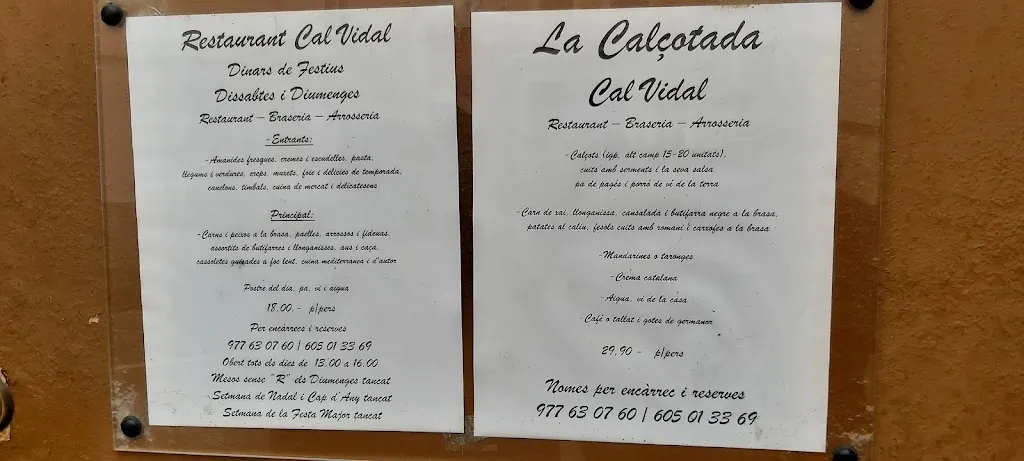 Restaurant Cal Vidal
Dinars de Festius
Dissabtes i Diumenges
Restaurant – Braseria – Arrosseria
-Entrants:
-Amanides fresques, cremes i escudelles, pasta,
llegums i verdures, creps, muxets, foie i delicies de temporada,
canelons, timbals, cuina de mercat i delicatesens
Principal:
-Carns i peixos a la brasa, paelles, arrossos i fideuas,
assortits de butifarres i llonganisses, aus i caça,
cassoletes guisades a foc lent, cuina mediterranea i d'autor
Postre del dia, pa, vi i aigua
18.00.- p/pers
Per encàrrecs i reserves
977 63 07 60 / 605 01 33 69
Obert tots els dies de 13.00 a 16.00
Mesos sense "R" els Diumenges tancat
Setmana de Nadal i Cap d'Any tancat
Setmana de la Festa Major tancat
La Calçotada
Cal Vidal
Restaurant – Braseria – Arrosseria
-Calçots (igp. alt camp 15-20 unitats),
cuits amb serments i la seva salsa
pa de pagés i porró de vi de la terra
-Carn de xai, llonganissa, cansalada i butifarra negre a la brasa,
patates al caliu, fesols cuits amb romani i carxofes a la brasa
-Mandarines o taronges
-Crema catalana
-Aigua, vi de la casa
Café o tallat i gotes de germanor
29.90 - p/pers
Nomes per encàrrec i reserves
977 63 07 60 / 605 01 33 69